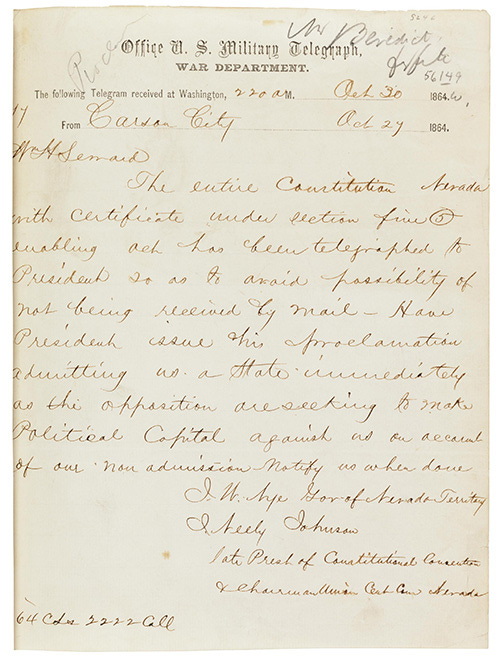 5646
Mr Benedict
for file
56149
Office U. S. Military Telegraph,
WAR DEPARTMENT.
The following Telegram received at Washington, 220 a M. Oct 30 1864.
17
From Carson City Oct 27 1864.
Wm H Seward
The entire Constitution Nevada
with certificate under section five 5
enabling act has been telegraphed to
President so as to avoid possibility of
not being received by mail – Have
President issue his proclamation
admitting us a State immediately
as the opposition are seeking to make
Political Capital against us on account
of our non admission Notify us when done
J. W. Nye Gov of Nevada Territory
J. Neely Johnson
late Prest of Constitutional Convention
& Chairman Union Cent Com Nevada
64 Cols 2222 Coll